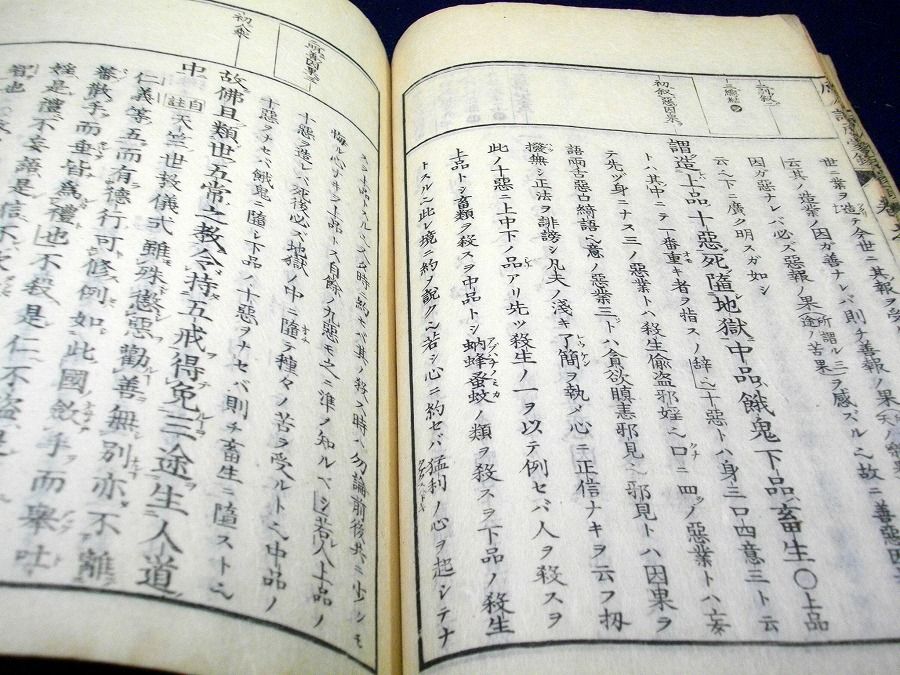 世ニ業ヲ造テ今世ニ其報ヲ
云其ノ造業ノ因ガ善ナレバ則チ善報ノ果
因ガ惡ナレバ必ズ惡報ノ果 所謂ル三途ノ苦果 ヲ感ズル也故ニ善惡因
云之下ニ廣ク明スガ如シ
初叙惡因果
謂造上品十惡死墮地獄中品餓鬼下品畜生〇上品
トハ其中ニテ一番重キ者ヲ指スノ辞也十惡トハ身三口四意三ト云
テ先ツ身ニナス三ノ惡業トハ殺生偷盗邪婬也口ニ四ノ惡業トハ妄
語両舌惡口綺語也意ノ惡業三トハ貪欲瞋恚邪見也邪見トハ因果ヲ
撥無シ正法ヲ誹謗シ凡夫ノ淺キ了簡ヲ執メ心ニ正信ナキヲ云フ扨
此ノ十惡ニ上中下ノ品アリ先ツ殺生ノ一ヲ以テ例セバ人ヲ殺スヲ
上品トシ畜類ヲ殺スヲ中品トシ蚋蜂蚤蚊ノ類ヲ殺スヲ下品ノ殺生
トスル也此レ境ニ約メ説ク也若シ心ニ約セバ猛利ノ心ヲ起シテナ
時ニ約セバ其ノ殺ス時ハ勿論前後共ニ少シモ
悔ル心ナキヲ上品トス自餘ノ九惡モ之ニ準メ知ルベシ若人上品ノ
十惡ヲ造レバ死後必ズ地獄ノ中ニ墮ヲ種々ノ苦ヲ受ルト也中品ノ
十惡ヲナセバ餓鬼ニ墮レ下品ノ十惡ヲナセバ則チ畜生ニ墮スト也
初人乘
故佛且類世五常之教令持五戒得免三途生人道
中 自註 天竺世教儀式雖殊懲惡勸善無別亦不離
仁義等五而有德行可修例如此國斂手而擧吐
蕃散手而垂皆爲禮也不殺是仁不盜是
婬是禮不妄語是信不
智也